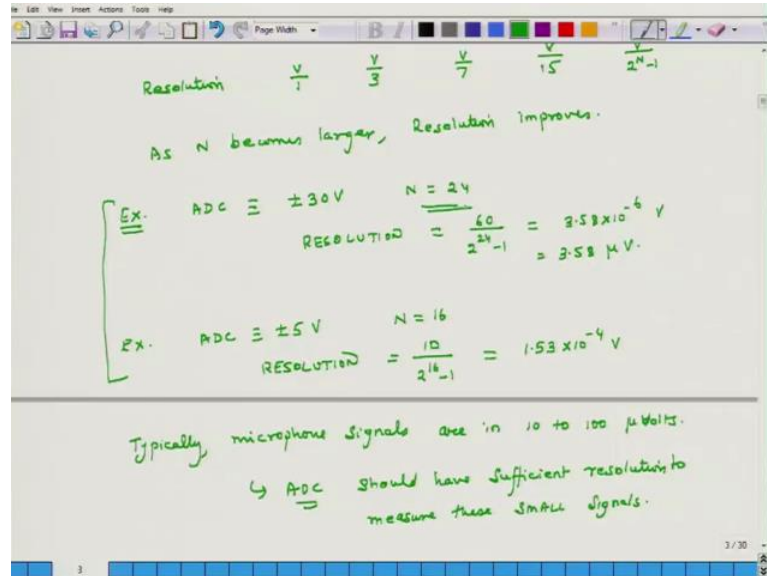 Edit View Insert Actions Tools Help
Page Width
Resolution V/1 V/3 V/7 V/15 V/2^N-1
As N becomes larger, Resolution improves.
Ex. ADC ≡ ±30V N = 24
RESOLUTION = 60/2^24-1 = 3.58x10^-6 V
= 3.58 μV.
Ex. ADC ≡ ±5 V N = 16
RESOLUTION = 10/2^16-1 = 1.53 x10^-4 V
Typically, microphone signals are in 10 to 100 μVolts.
↳ ADC should have sufficient resolution to
measure these SMALL signals.
3 / 30
3